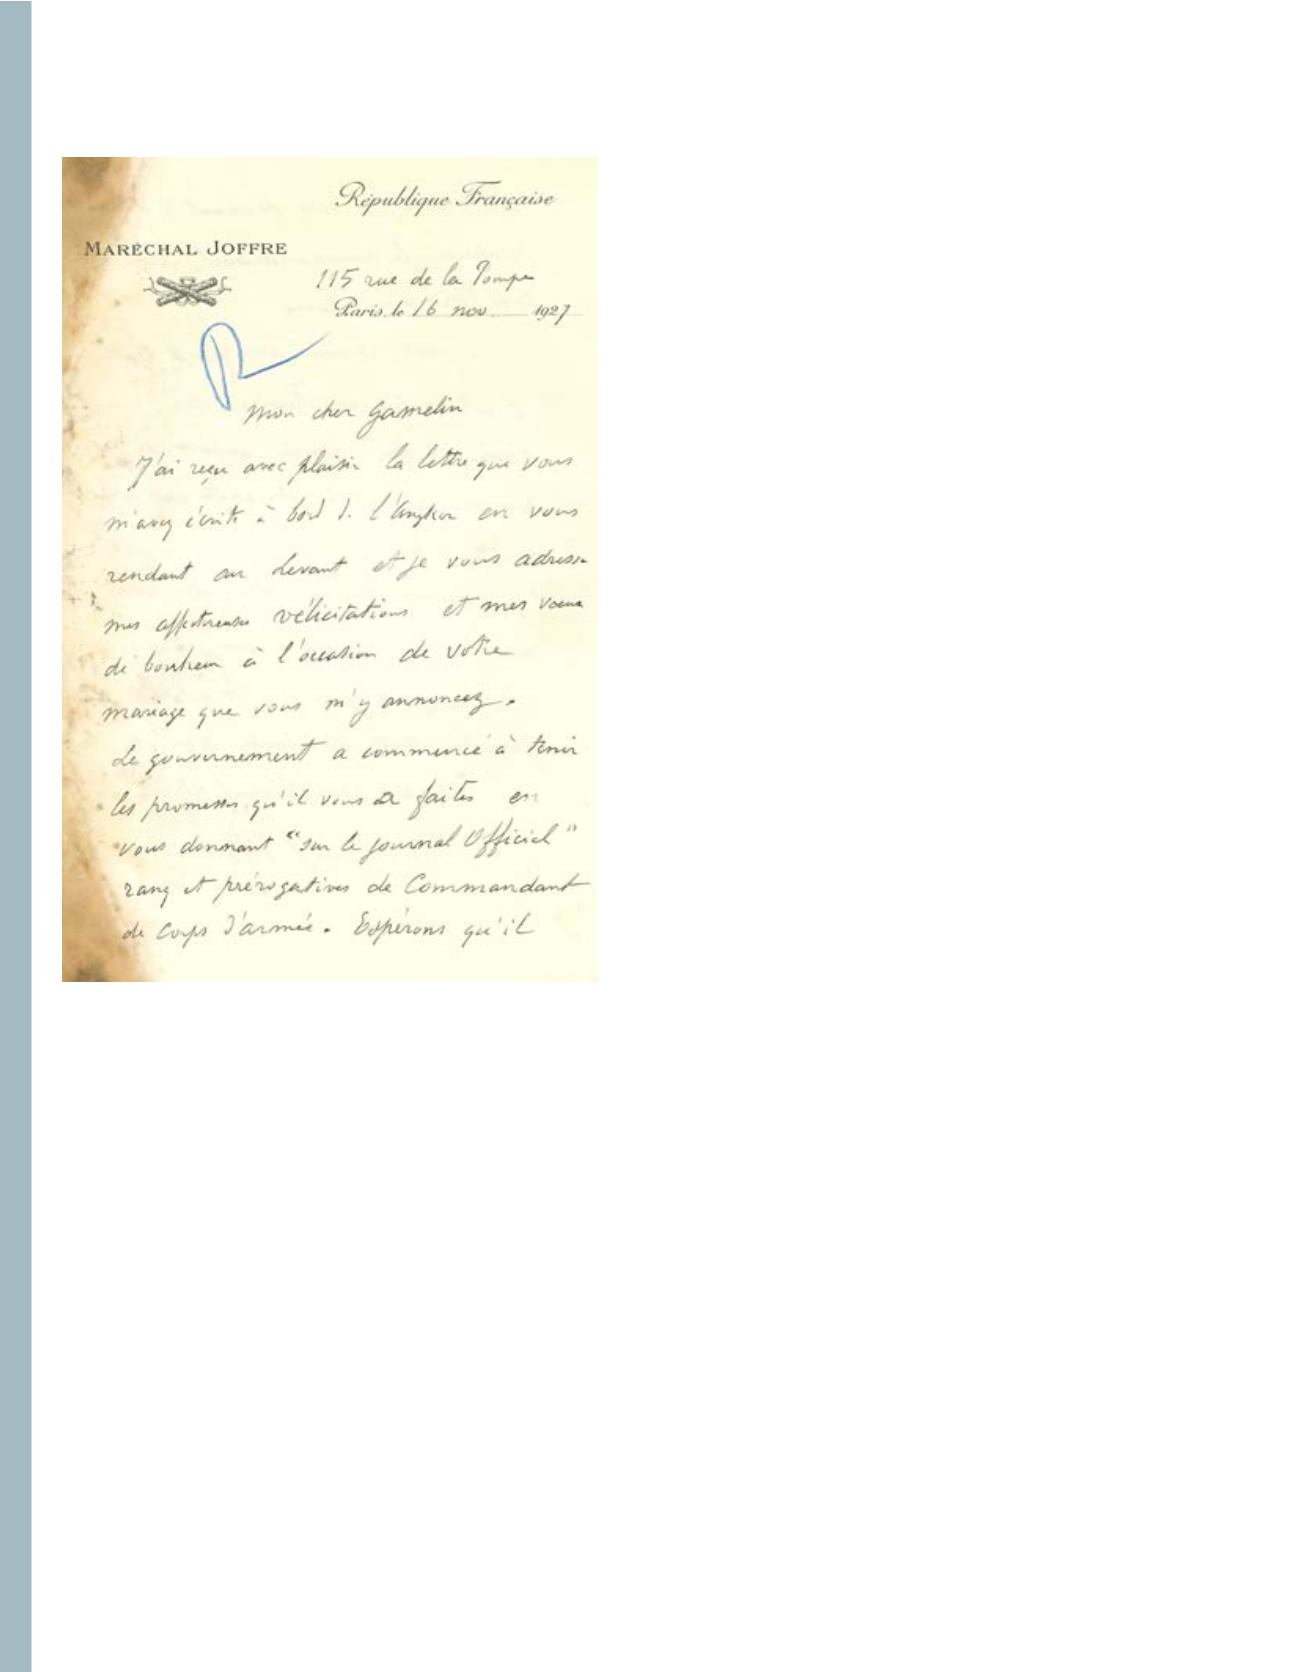 République Française
MARÉCHAL JOFFRE
115 rue de la Pompe
Paris, le 16 nov 1927
R
Mon cher Gamelin
J'ai reçu avec plaisir la lettre que vous
m'avez écrite à bord de l'Angkor en vous
rendant au Levant et je vous adresse
mes affectueuses félicitations et mes vœux
de bonheur à l'occasion de votre
mariage que vous m'y annoncez.
Le gouvernement a commencé à tenir
les promesses qu'il vous a faites en
vous donnant "sur le journal Officiel"
rang et prérogatives de Commandant
de Corps d'armée. Espérons qu'il